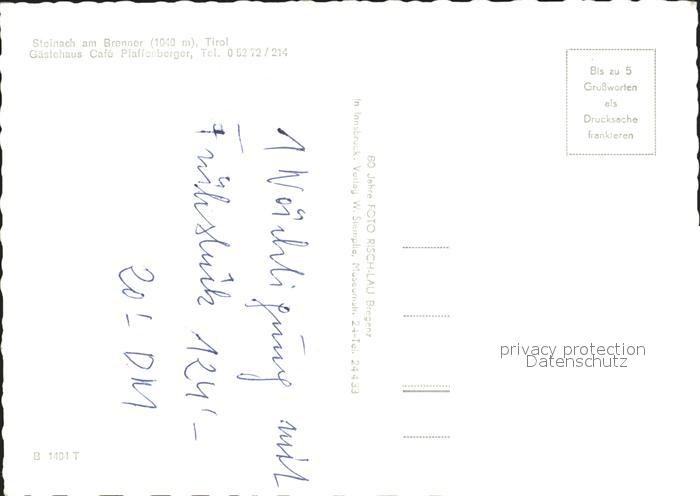 Steinach am Brenner (1048 m), Tirol
Gästehaus Café Pfaffenberger, Tel. 0 52 72 / 214
Bis zu 5
Grußworten
als
Drucksache
frankieren
80 Jahre FOTO RISCH-LAU Bregenz
In Innsbruck: Verlag W. Stempfle, Museumstr. 24-Tel. 24433
1 Nächtigung mit
Frühstück 124'-
20'- DM
privacy protection
Datenschutz
B 1401 T